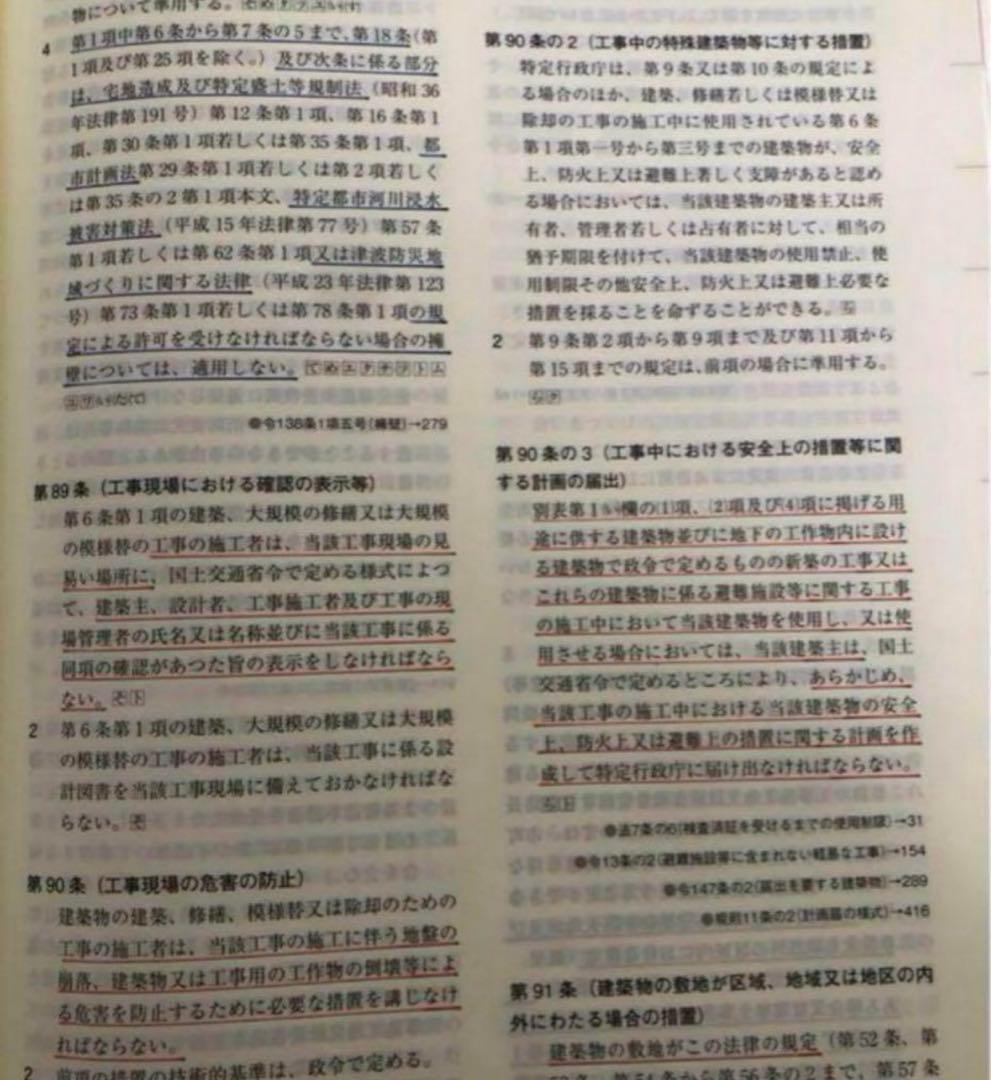 物について準用する。
4 第1項中第6条から第7条の5まで、第18条(第
1項及び第25項を除く。)及び次条に係る部分
は、宅地造成及び特定盛土等規制法(昭和36
年法律第191号)第12条第1項、第16条第1
項、第30条第1項若しくは第35条第1項、都
市計画法第29条第1項若しくは第2項若しく
は第35条の2第1項本文、特定都市河川浸水
被害対策法(平成15年法律第77号)第57条
第1項若しくは第62条第1項又は津波防災地
域づくりに関する法律(平成23年法律第123
号)第73条第1項若しくは第78条第1項の規
定による許可を受けなければならない場合の擁
壁については、適用しない。
●令138条1項五号(擁壁)→279
第89条(工事現場における確認の表示等)
第6条第1項の建築、大規模の修繕又は大規模
の模様替の工事の施工者は、当該工事現場の見
易い場所に、国土交通省令で定める様式によつ
て、建築主、設計者、工事施工者及び工事の現
場管理者の氏名又は名称並びに当該工事に係る
同項の確認があつた旨の表示をしなければなら
ない。そト
2 第6条第1項の建築、大規模の修繕又は大規模
の模様替の工事の施工者は、当該工事に係る設
計図書を当該工事現場に備えておかなければな
らない。そ
第90条(工事現場の危害の防止)
建築物の建築、修繕、模様替又は除却のための
工事の施工者は、当該工事の施工に伴う地盤の
崩落、建築物又は工事用の工作物の倒壊等によ
る危害を防止するために必要な措置を講じなけ
ればならない。
2 前項の措置の技術的基準は、政令で定める。
第90条の2(工事中の特殊建築物等に対する措置)
特定行政庁は、第9条又は第10条の規定によ
る場合のほか、建築、修繕若しくは模様替又は
除却の工事の施工中に使用されている第6条
第1項第一号から第三号までの建築物が、安全
上、防火上又は避難上著しく支障があると認め
る場合においては、当該建築物の建築主又は所
有者、管理者若しくは占有者に対して、相当の
猶予期限を付けて、当該建築物の使用禁止、使
用制限その他安全上、防火上又は避難上必要な
措置を採ることを命ずることができる。ら
2 第9条第2項から第9項まで及び第11項から
第15項までの規定は、前項の場合に準用する。
第90条の3(工事中における安全上の措置等に関
する計画の届出)
別表第1(い)欄の(1)項、(2)項及び(4)項に掲げる用
途に供する建築物並びに地下の工作物内に設け
る建築物で政令で定めるものの新築の工事又は
これらの建築物に係る避難施設等に関する工事
の施工中において当該建築物を使用し、又は使
用させる場合においては、当該建築主は、国土
交通省令で定めるところにより、あらかじめ、
当該工事の施工中における当該建築物の安全
上、防火上又は避難上の措置に関する計画を作
成して特定行政庁に届け出なければならない。
●法7条の6(検査済証を受けるまでの使用制限)→31
●令13条の2(避難施設等に含まれない軽易な工事)→154
●令147条の2(届出を要する建築物)→289
●規則11条の2(計画届の様式)→416
第91条(建築物の敷地が区域、地域又は地区の内
外にわたる場合の措置)
建築物の敷地がこの法律の規定(第52条、第
53条、第54条から第56条の2まで、第57条